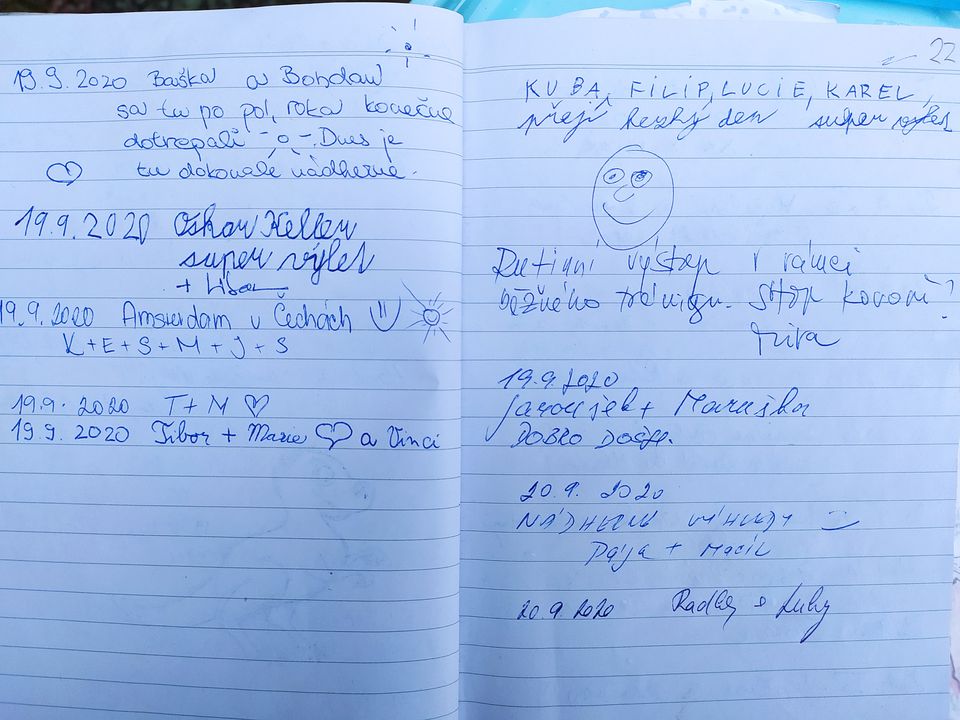 19.9.2020 Baška a Bohdan
sa tu po pol roka konečne
dotrepali -o- Dnes je
tu dokonale nádherne.
19.9.2020 Oskar Keller
super výlet
+ Libor
19.9.2020 Amsterdam v Čechách
K+E+S+M+J+S
19.9.2020 T+M
19.9.2020 Tibor + Marie a Vinci
22
KUBA, FILIP, LUCIE, KAREL,
přejí hezký den super výlet
Rutinní výstup v rámci
běžného tréningu. Stop
19.9.2020
Jaroušek + Maruška
DOBRO
20.9. 2020
NÁDHERNÉ VÝHLEDY
Pája +
20.9.2020